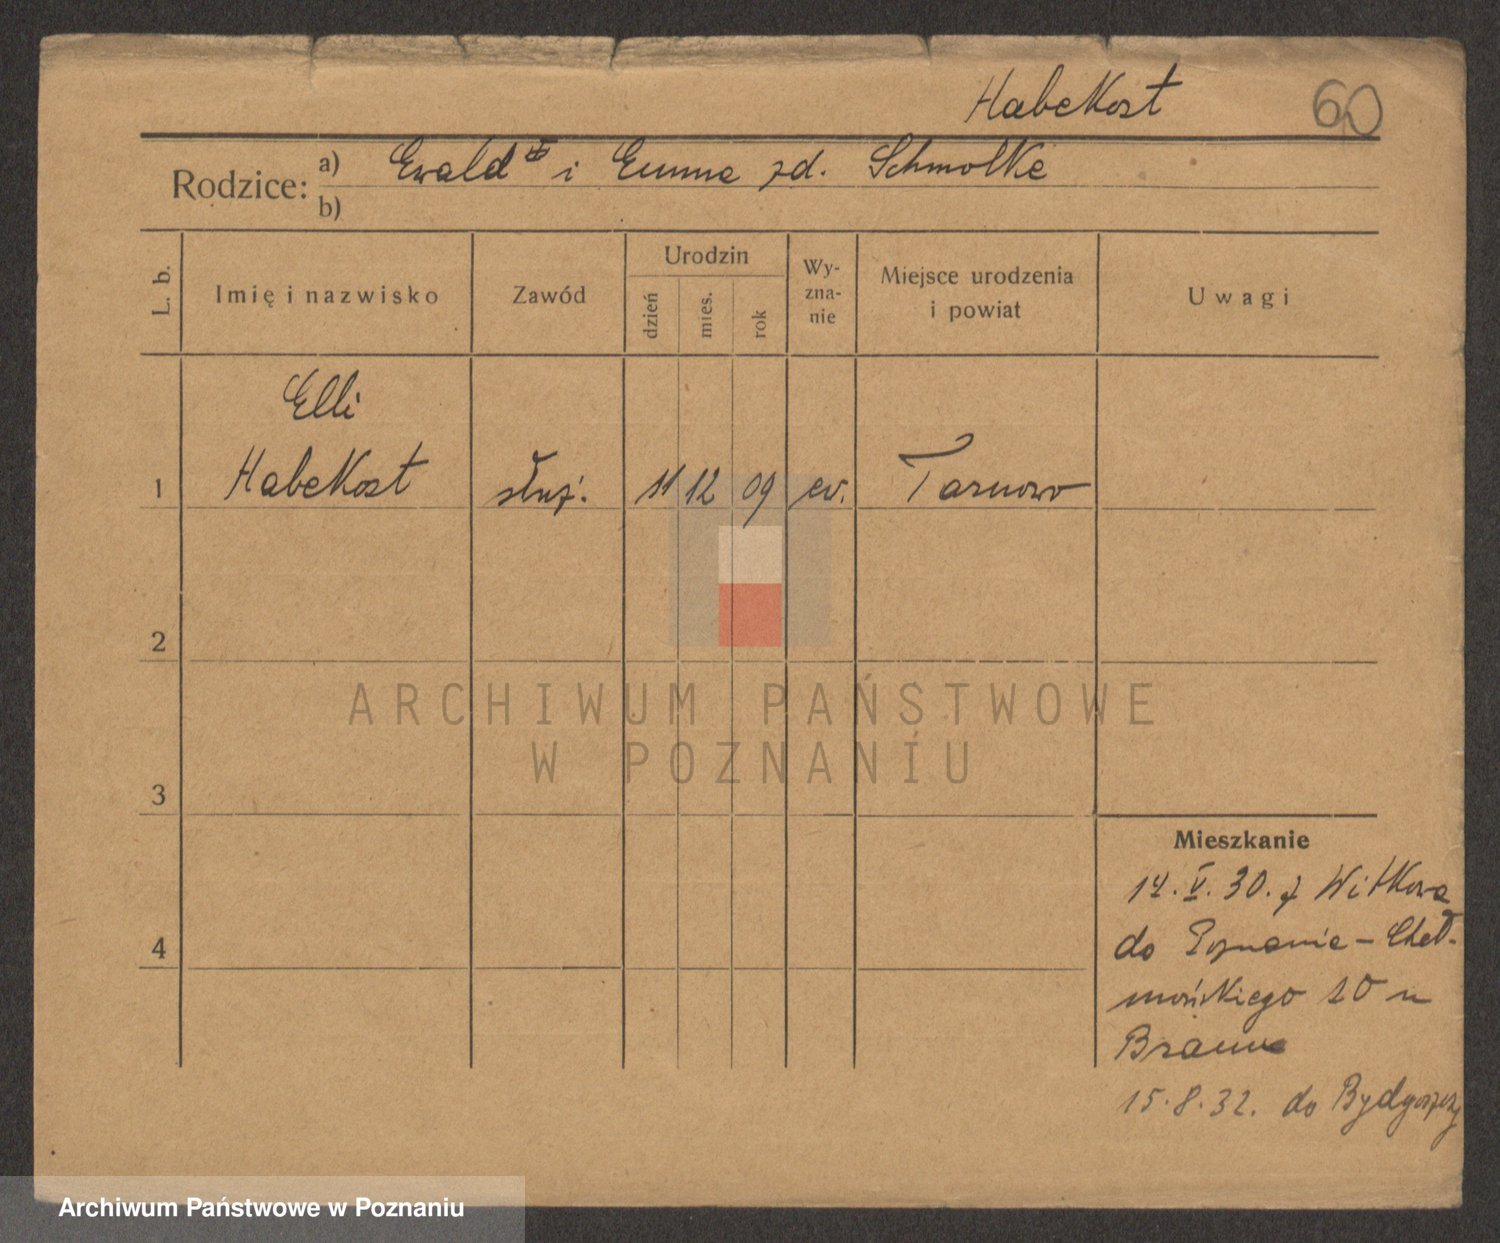 Habekost
60
Rodzice:
a) Ewald i Emma zd. Schmolke
b)
L. b.
Imię i nazwisko
Zawód
Urodzin
dzień
mies.
rok
Wy-
zna-
nie
Miejsce urodzenia
i powiat
Uwagi
Elli
1 Habekost służ. 11 12 09 ew. Tarnowo
2
3
4
Mieszkanie
14. V. 30. z Witkowa
do Poznania - Cheł-
mońskiego 10 u
Braun
15.8.32. do Bydgoszczy
ARCHIWUM PAŃSTWOWE
W POZNANIU
Archiwum Państwowe w Poznaniu